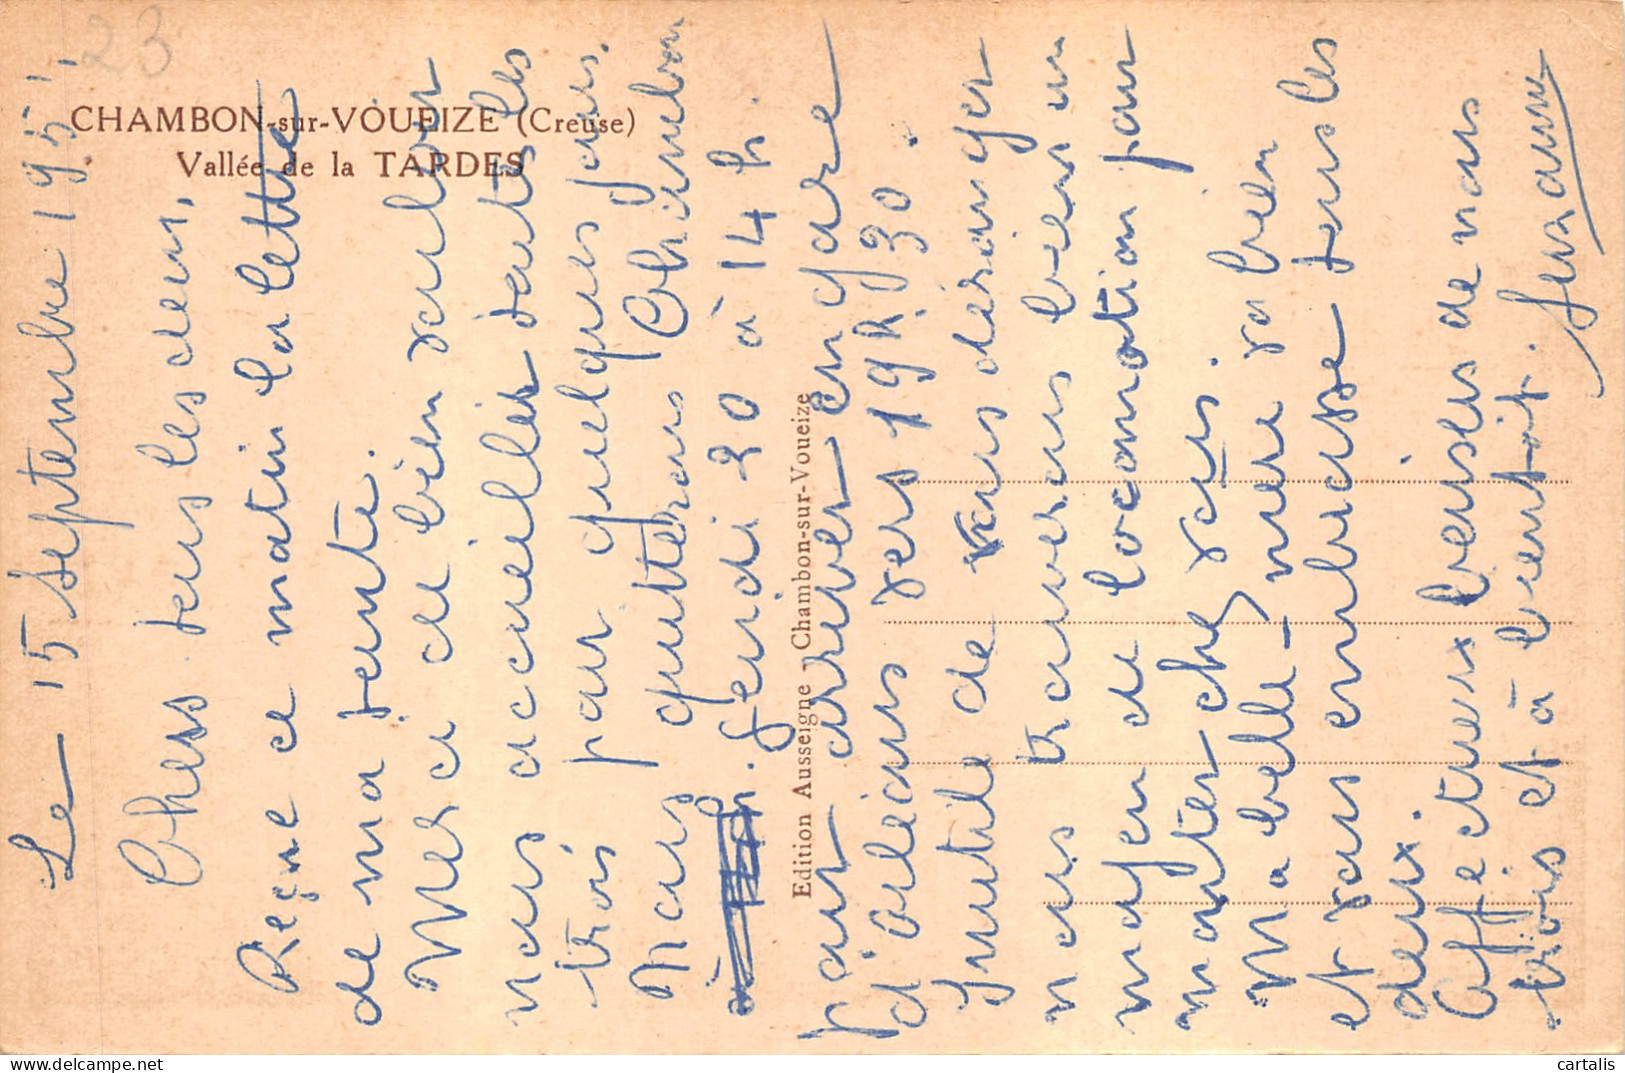 23
CHAMBON-sur-VOUEIZE (Creuse)
Vallée de la TARDES
Edition Ausseigne - Chambon-sur-Voueize
Le 15 septembre 1951
Chers tous les deux,
Reçue ce matin la lettre
de ma tante.
Merci de bien vouloir
nous accueillir toutes les
trois par quelques jours.
Nous quitterons Chambon
jeudi 20 à 14 h.
pour arriver en gare
d'orléans vers 19h.30.
Inutile de vous déranger
nous trouverons bien un
moyen de locomotion pour
monter chez vous.
Ma belle-mère va bien
et vous embrasse tous les
deux.
Affectueux baisers de nous
trois et à bientôt.
Suzanne
cartalis